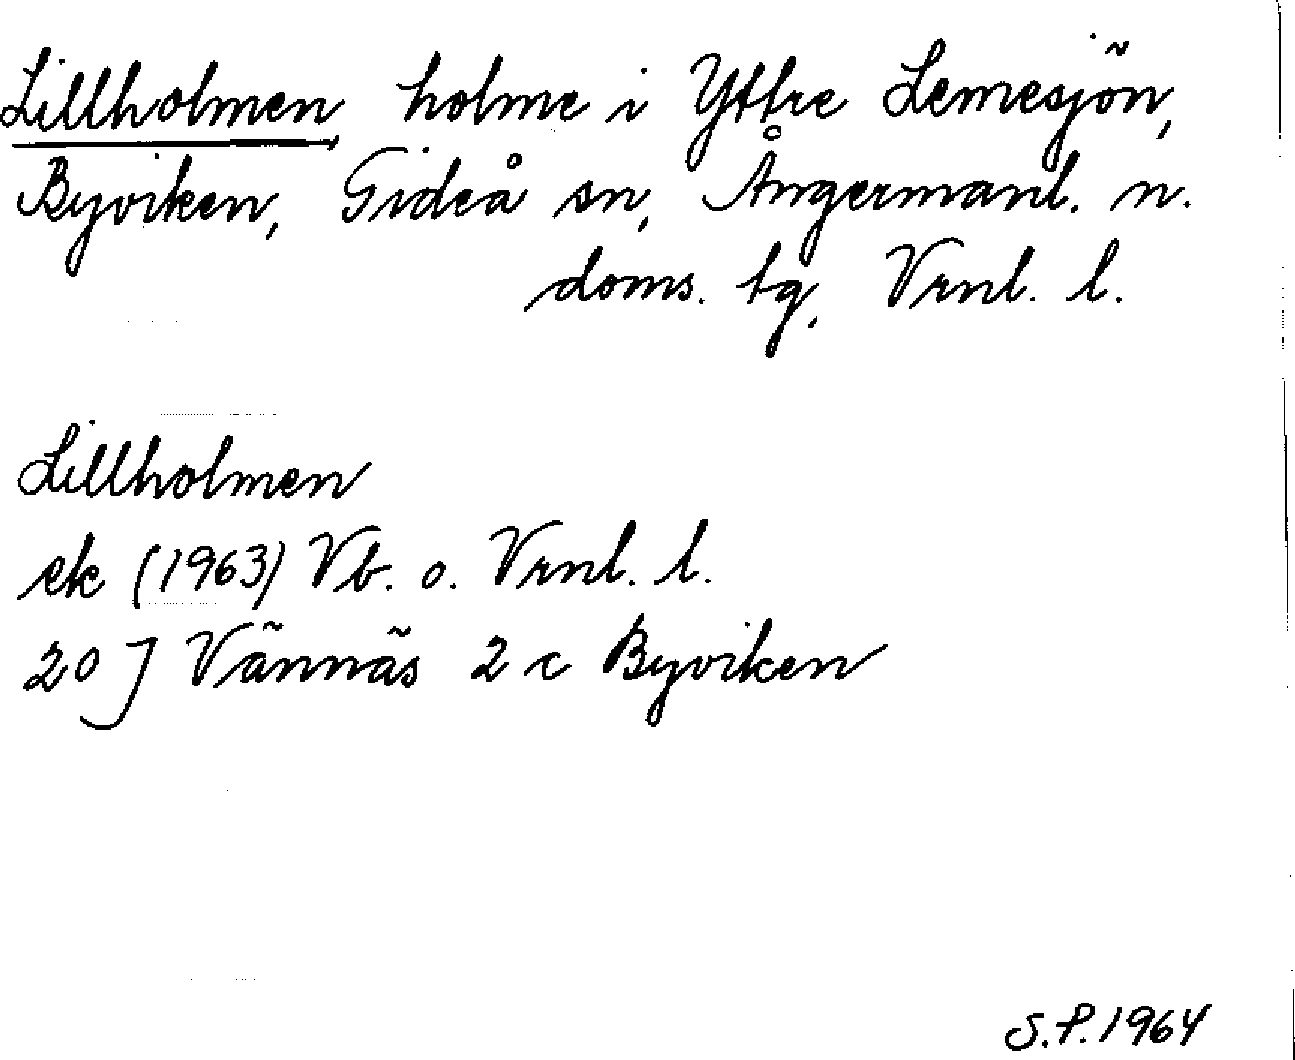 Lillholmen, holme i Yttre Lemesjön,
Byviken, Gideå sn, Ångermanl. n.
doms. tg, Vrnl. l.
Lillholmen
ek (1963) Vb. o. Vrnl. l.
20 J Vännäs 2 c Byviken
S.P. 1964